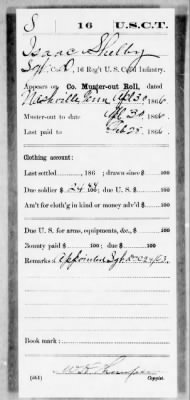 S 16 U.S.C.T.
Isaac Shelby
Sgt., Co. D, 16 Reg't U.S. Col'd Infantry.
Appears on Co. Muster-out Roll, dated
Nashville, Tenn Apl 30, 1866.
Muster-out to date Apl 30, 1866.
Last paid to Feb 28, 1866.
Clothing account:
Last settled , 186 ; drawn since $ 100
Due soldier $ 24 100; due U.S. $ 100
Am't for cloth'g in kind or money adv'd $ 100
Due U.S. for arms, equipments, &c., $ 100
Bounty paid $ 100; due $ 100
Remarks: Appointed Sgt. Dec 24/63.
Book mark:
(861) Copyist.